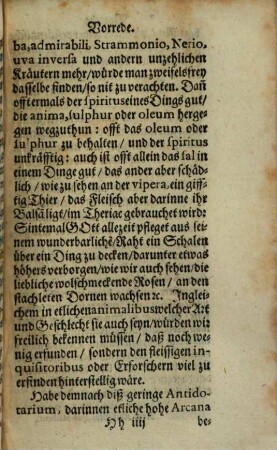 Vorrede.
ba, admirabili, Strammonio, Nerio,
uva inversa und andern unzehlichen
Kräutern mehr / würde man zweifelsfrey
dasselbe finden / so nit zu verachten. Dañ
offtermals der spiritus eines Dings gut /
die anima, sulphur oder oleum herge-
gen wegzuthun: offt das oleum oder
su'phur zu behalten / und der spiritus
unkräfftig: auch ist offt allein das sal in
einem Dinge gut / das ander aber schäd-
lich / wie zu sehen an der vipera, ein giff-
tig Thier / das Fleisch aber darinne ihr
Balsā ligt / im Theriac gebrauchet wird:
Sintemal GOtt allezeit pfleget aus sei-
nem wunderbarlichē / Raht ein Schalen
über ein Ding zu decken / darunter etwas
höhers verborgen / wie wir auch sehen / die
liebliche wolschmeckende Rosen / an den
stachleten Dornen wachsen ꝛc. Inglei-
chem in etlichen animalibus welcher Art
und Geschlecht sie auch seyn / würden wir
freilich bekennen müssen / daß noch we-
nig erfunden / sondern den fleissigen in-
quisitoribus oder Erforschern viel zu
erfinden hinterstellig wäre.
Habe demnach diß geringe Antido-
tarium, darinnen etliche hohe Arcana
Hh iiij
be-